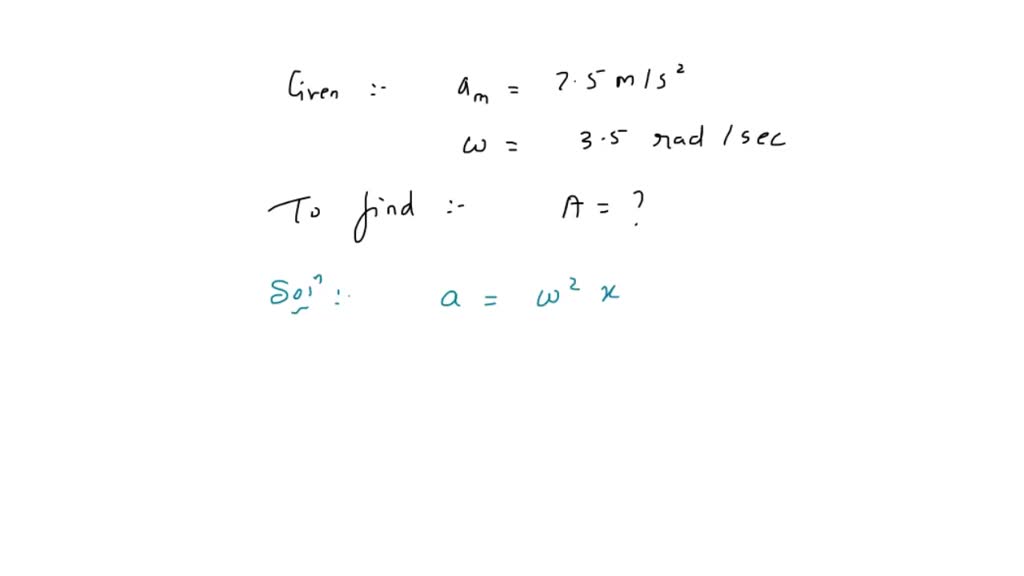 Given :- aₘ = 7.5 m/s²
ω = 3.5 rad/sec
To find :- A = ?
Solⁿ :- a = ω² x